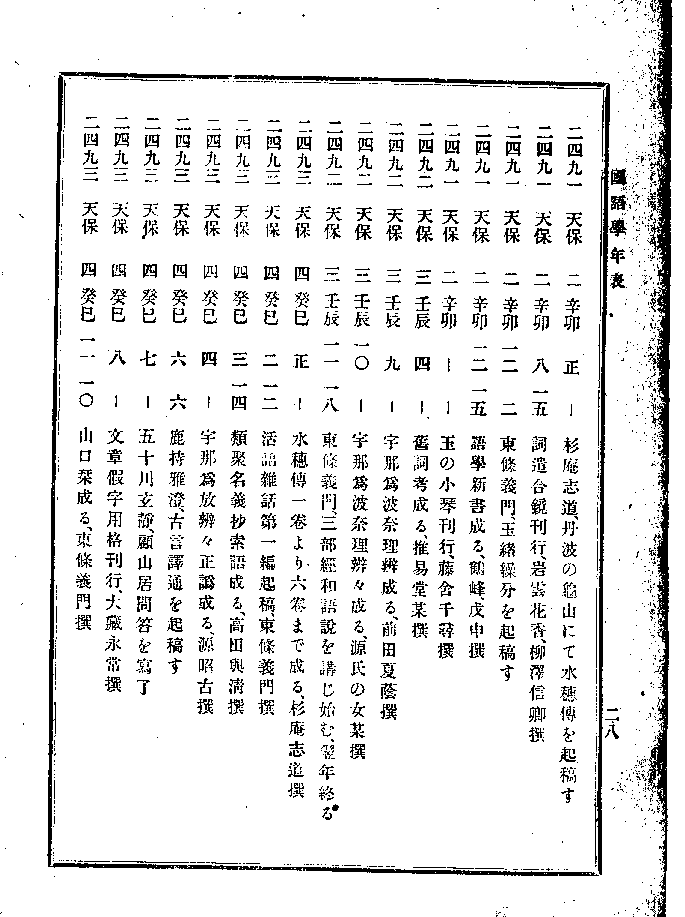 國語學年表
二八
二四九一 天保 二 辛卯 正 ー 杉庵志道、丹波の龜山にて水穗傳を起稿す
二四九一 天保 二 辛卯 八 一五 詞遣合鏡刊行、岩雲花香、柳澤信卿撰
二四九一 天保 二 辛卯 一二 二 東條義門、玉緒繰分を起稿す
二四九一 天保 二 辛卯 一二 一五 語學新書成る、鶴峰戊申撰
二四九一 天保 二 辛卯 ー ー 玉の小琴刊行、藤舍千尋撰
二四九二 天保 三 壬辰 四 ー 舊詞考成る、推易堂某撰
二四九二 天保 三 壬辰 九 ー 宇那爲波奈理辨成る、前田夏蔭撰
二四九二 天保 三 壬辰 一〇 ー 宇那爲波奈理辨々成る、源氏の女某撰
二四九二 天保 三 壬辰 一一 一八 東條義門、三部經和語說を講じ始む、翌年終る
二四九三 天保 四 癸巳 正 ー 水穗傳一卷より六卷まで成る、杉庵志道撰
二四九三 天保 四 癸巳 二 一二 活語雜話第一編起稿、東條義門撰
二四九三 天保 四 癸巳 三 一四 類聚名義抄索語成る、高田與淸撰
二四九三 天保 四 癸巳 四 ー 宇那爲放辨々正譌成る、源昭古撰
二四九三 天保 四 癸巳 六 六 鹿持雅澄、古言譯通を起稿す
二四九三 天保 四 癸巳 七 ー 五十川玄靜、願山居問答を寫了
二四九三 天保 四 癸巳 八 ー 文章假字用格刊行、大藏永常撰
二四九三 天保 四 癸巳 一一 一〇 山口栞成る、東條義門撰